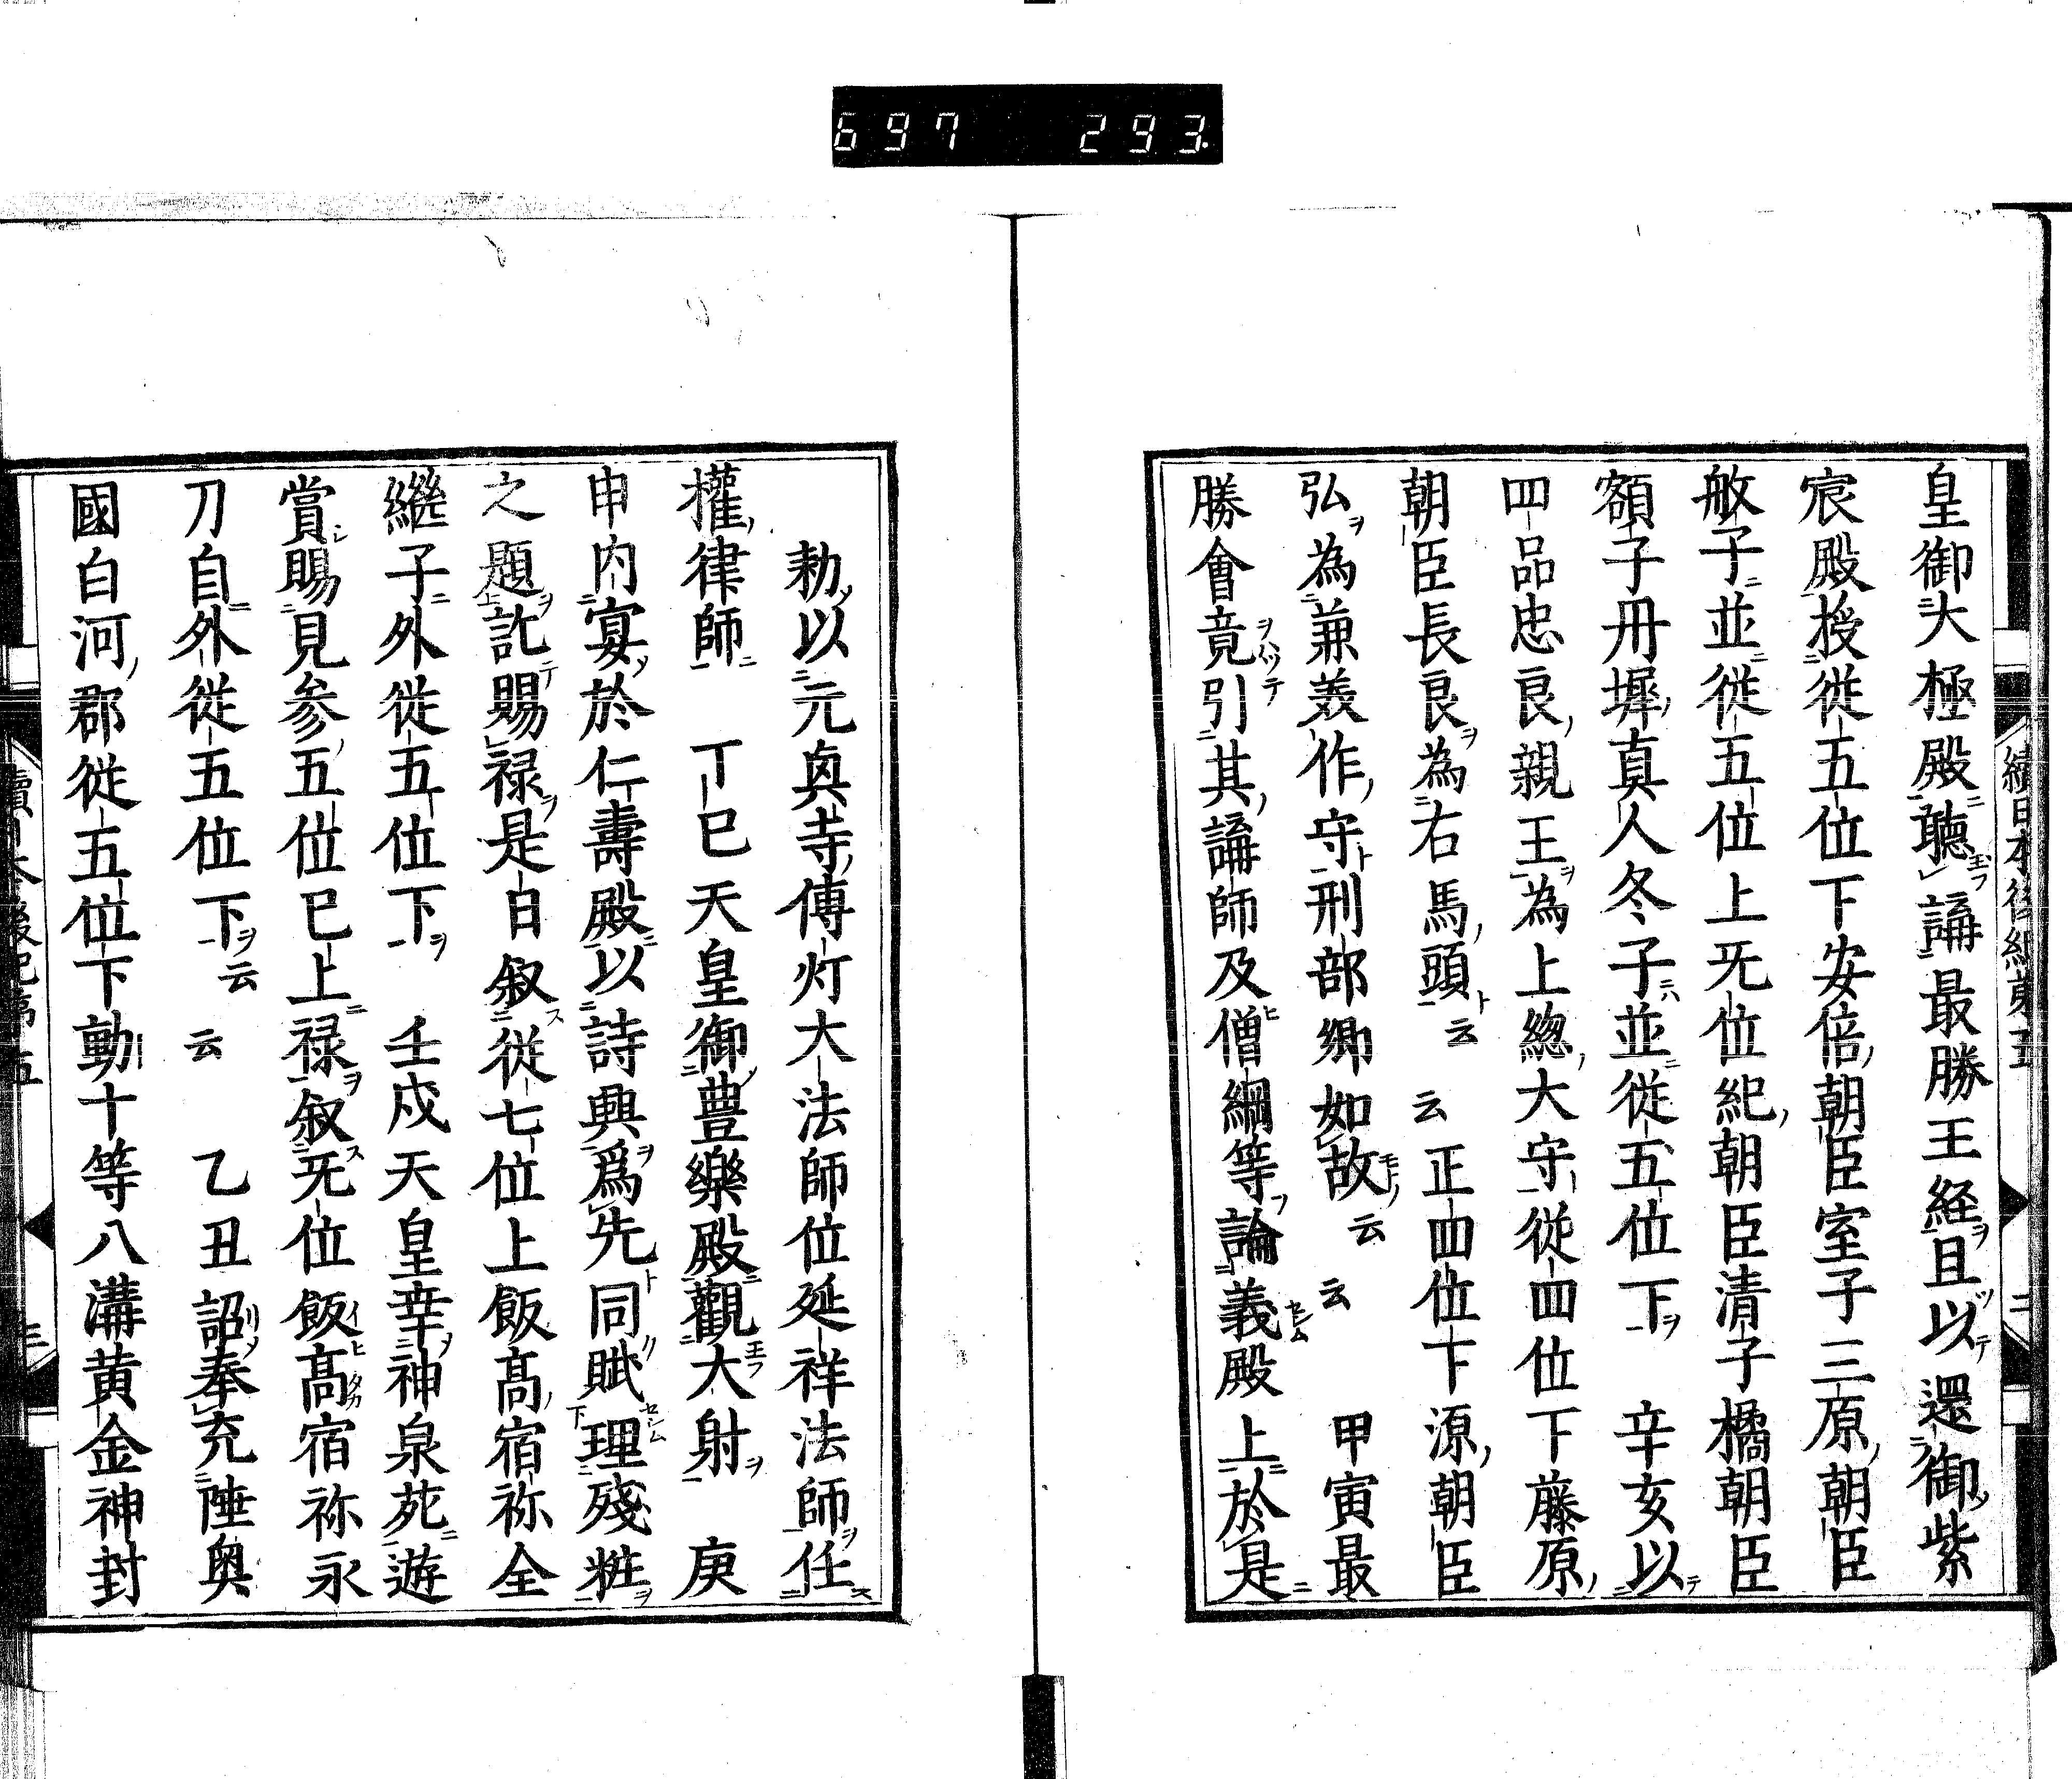 697 293
續日本後紀第五 二
皇御大極殿聽講最勝王経且以還御紫
宸殿授従五位下安倍朝臣室子三原朝臣
敀子並従五位上旡位紀朝臣清子橘朝臣
額子丹墀真人冬子並従五位下 辛亥以
四品忠良親王為上緫大守従四位下藤原
朝臣長良為右馬頭云云正四位下源朝臣
弘為兼美作守刑部卿如故云云 甲寅最
勝會竟引其講師及僧綱等論義殿上於是
勅以元真寺傳灯大法師位延祥法師任
權律師 丁巳天皇御豊樂殿觀大射 庚
申内宴於仁壽殿以詩興爲先同賦理殘粧
之題訖賜禄是日叙従七位上飯髙宿祢全
繼子外従五位下 壬戌天皇幸神泉苑遊
賞賜見参五位已上禄叙旡位飯髙宿祢永
刀自外従五位下云云 乙丑詔奉充陸奥
國白河郡従五位下勳十等八溝黄金神封
續日本後紀第五 三